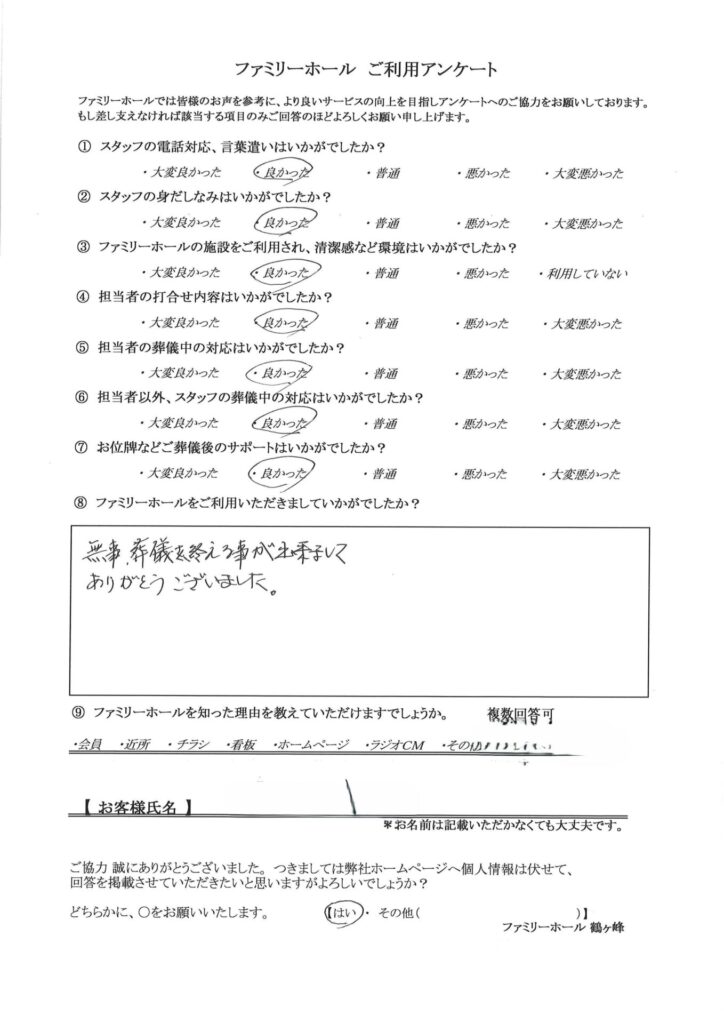 ファミリーホール ご利用アンケート
ファミリーホールでは皆様のお声を参考に、より良いサービスの向上を目指しアンケートへのご協力をお願いしております。
もし差し支えなければ該当する項目のみご回答のほどよろしくお願い申し上げます。
① スタッフの電話対応、言葉遣いはいかがでしたか？
・大変良かった ・良かった ・普通 ・悪かった ・大変悪かった
② スタッフの身だしなみはいかがでしたか？
・大変良かった ・良かった ・普通 ・悪かった ・大変悪かった
③ ファミリーホールの施設をご利用され、清潔感など環境はいかがでしたか？
・大変良かった ・良かった ・普通 ・悪かった ・利用していない
④ 担当者の打合せ内容はいかがでしたか？
・大変良かった ・良かった ・普通 ・悪かった ・大変悪かった
⑤ 担当者の葬儀中の対応はいかがでしたか？
・大変良かった ・良かった ・普通 ・悪かった ・大変悪かった
⑥ 担当者以外、スタッフの葬儀中の対応はいかがでしたか？
・大変良かった ・良かった ・普通 ・悪かった ・大変悪かった
⑦ お位牌などご葬儀後のサポートはいかがでしたか？
・大変良かった ・良かった ・普通 ・悪かった ・大変悪かった
⑧ ファミリーホールをご利用いただきましていかがでしたか？
無事、葬儀を終える事が出来まして
ありがとうございました。
⑨ ファミリーホールを知った理由を教えていただけますでしょうか。 複数回答可
・会員 ・近所 ・チラシ ・看板 ・ホームページ ・ラジオCM ・その
【 お客様氏名 】
＊お名前は記載いただかなくても大丈夫です。
ご協力 誠にありがとうございました。つきましては弊社ホームページへ個人情報は伏せて、
回答を掲載させていただきたいと思いますがよろしいでしょうか？
どちらかに、〇をお願いいたします。 【はい ・ その他（ ）】
ファミリーホール 鶴ヶ峰